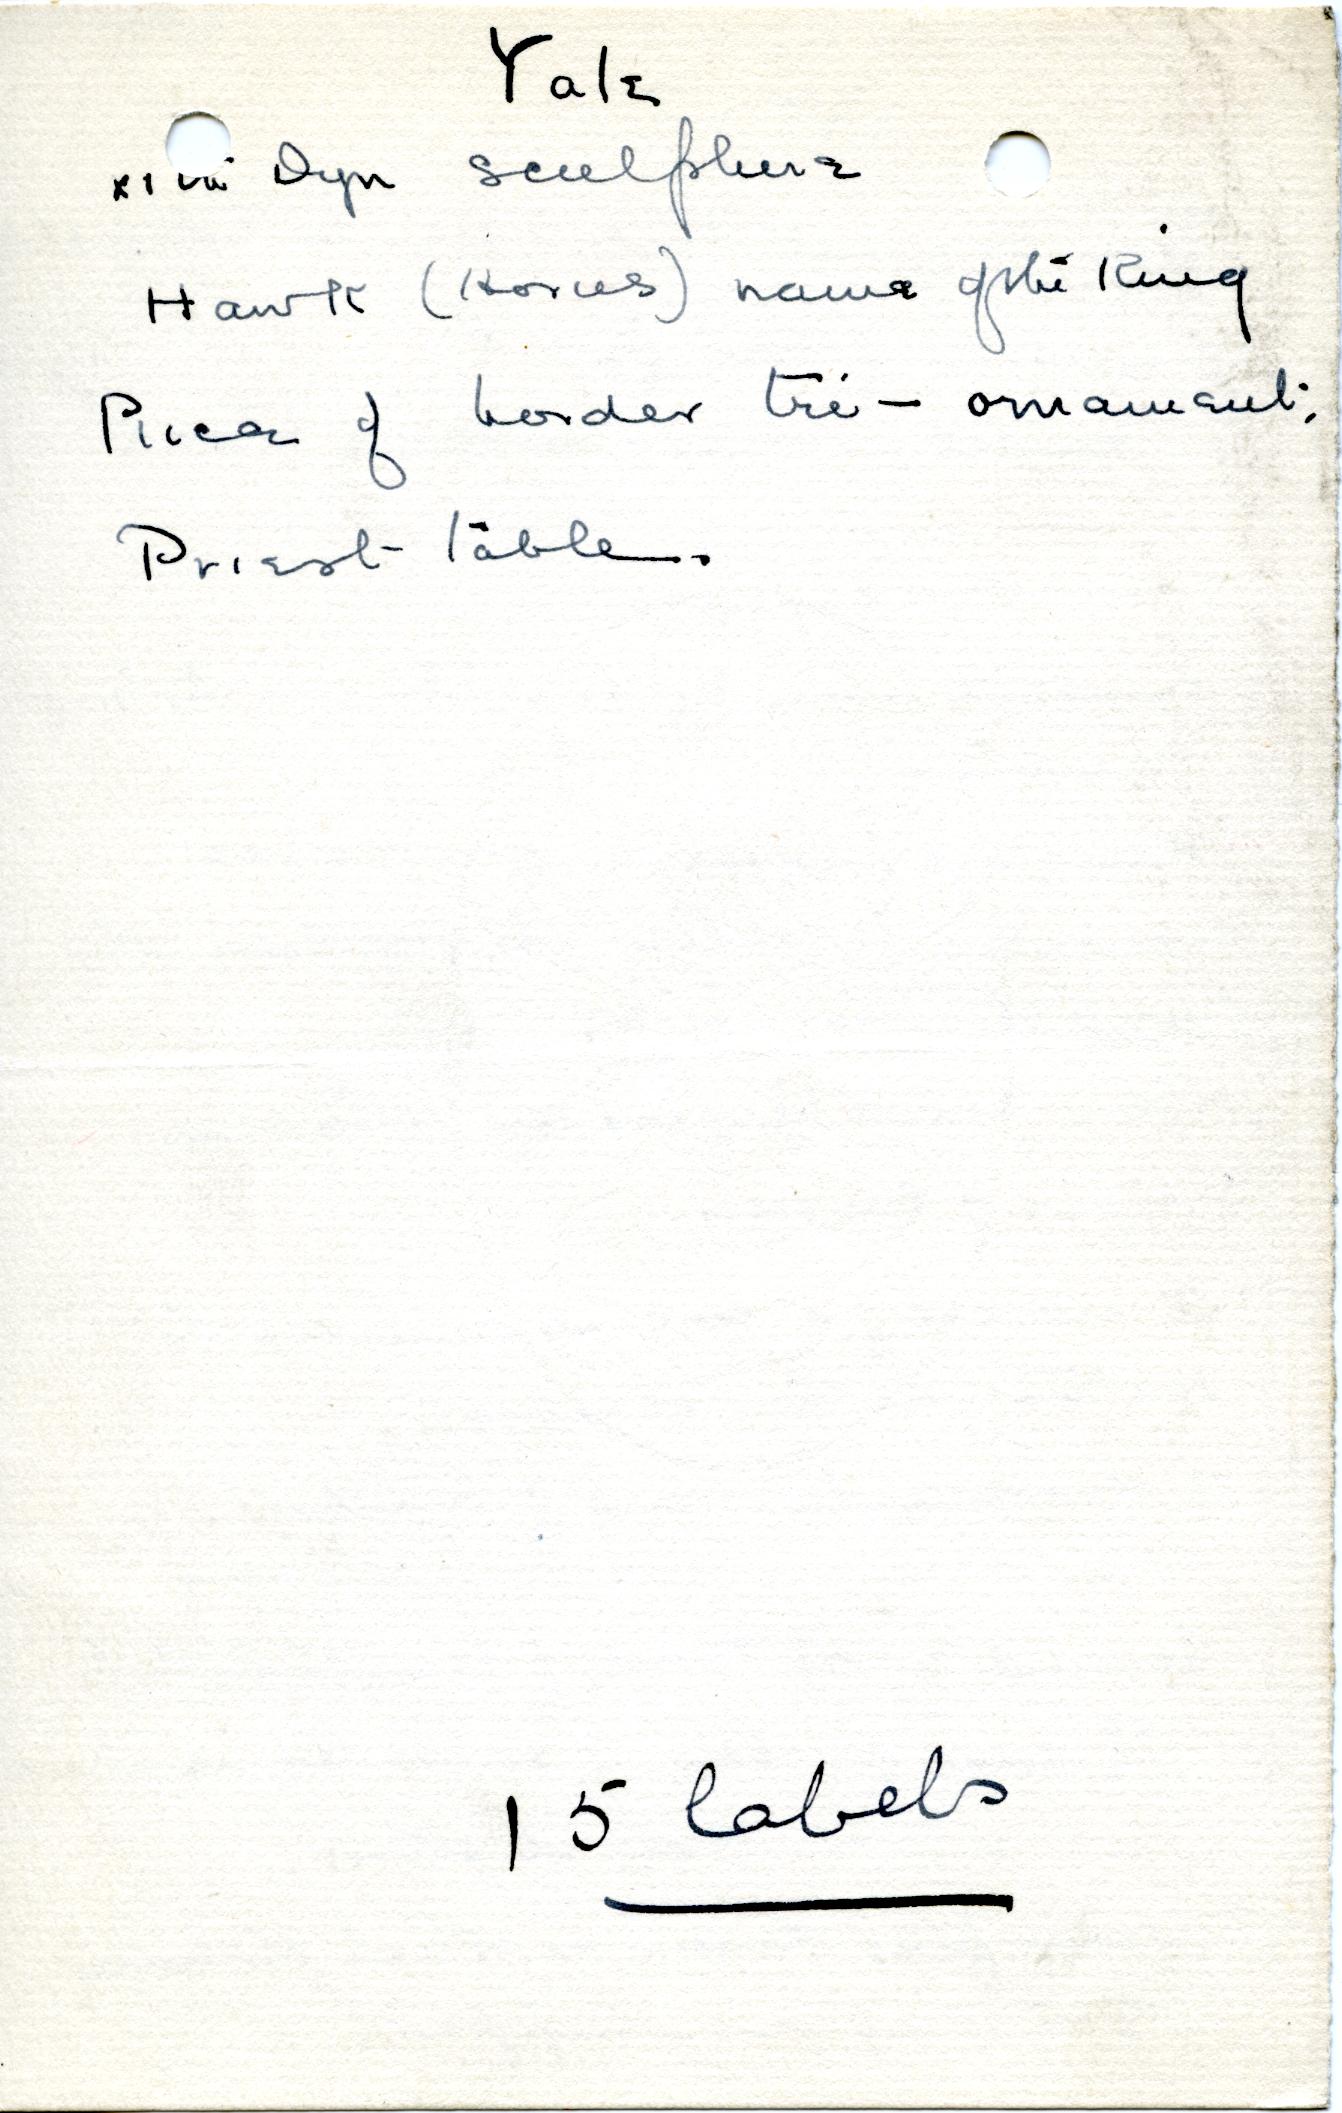 Yale
Dyn sculpture
Hawk (Horus) name of the King
Piece of border tri- ornament;
Priest table.
15 labels